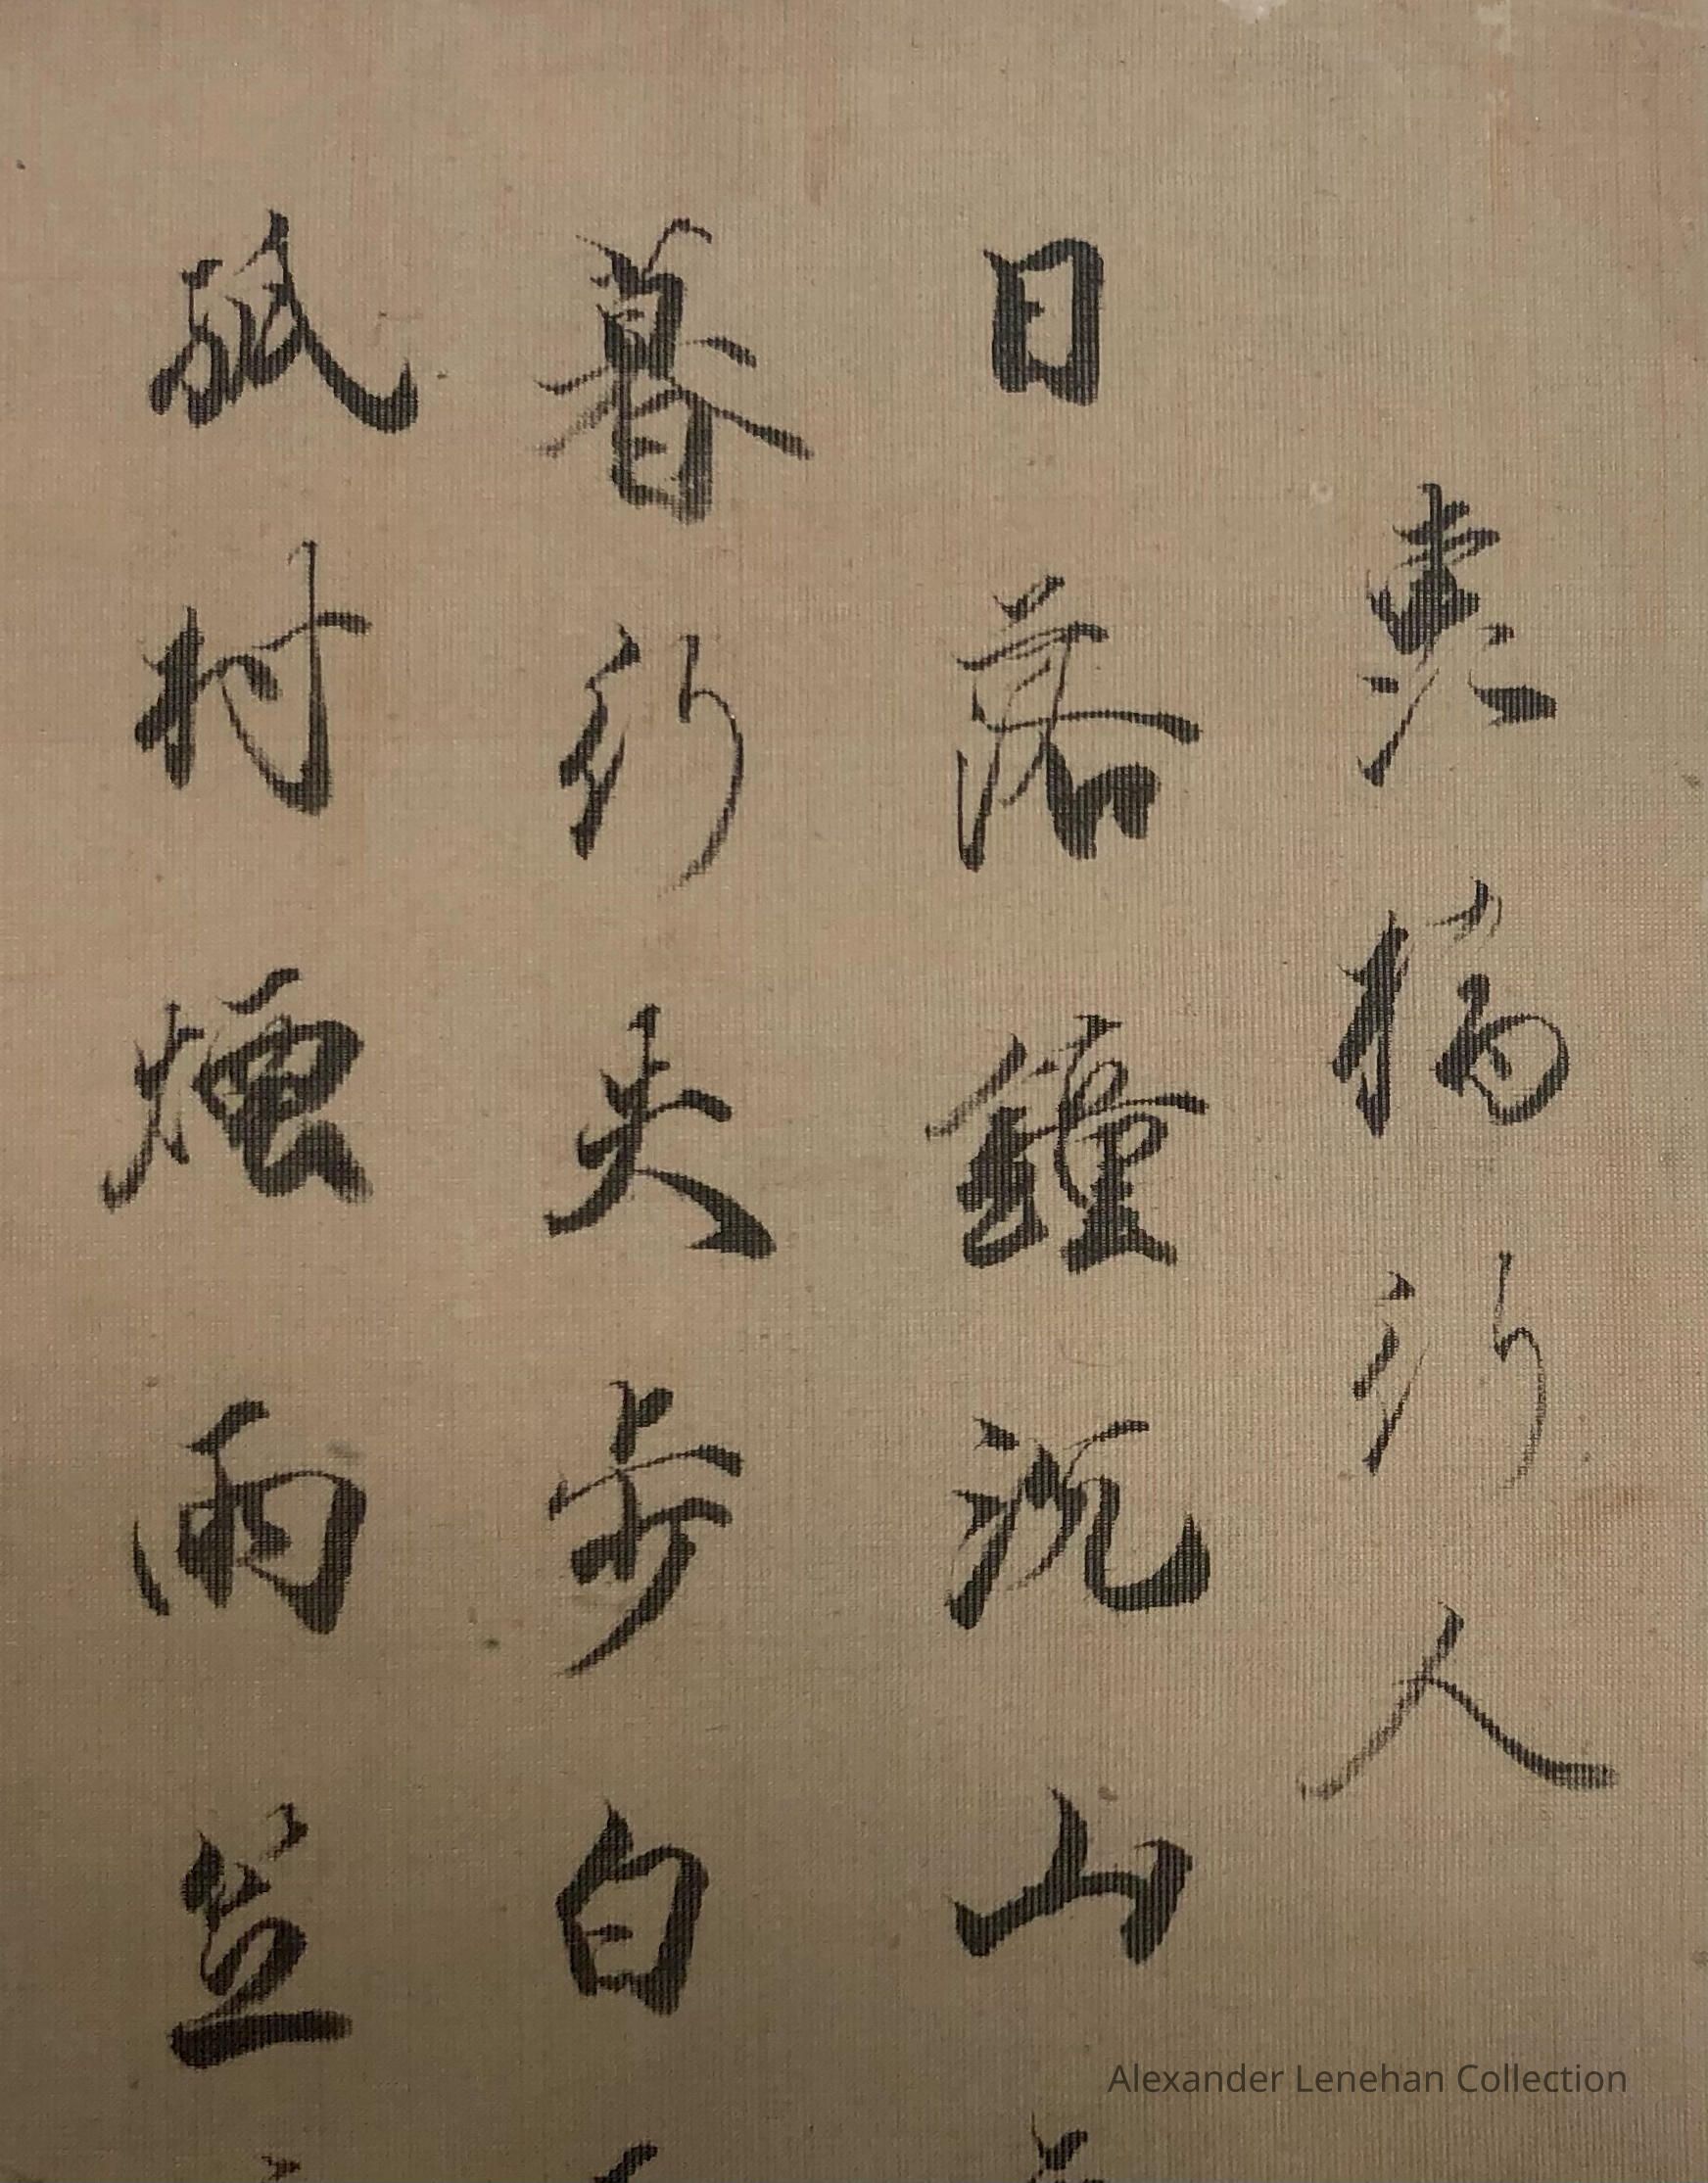 橋行人
日落鐘沉山
暮行失步白
孤村煙雨笠
Alexander Lenehan Collection